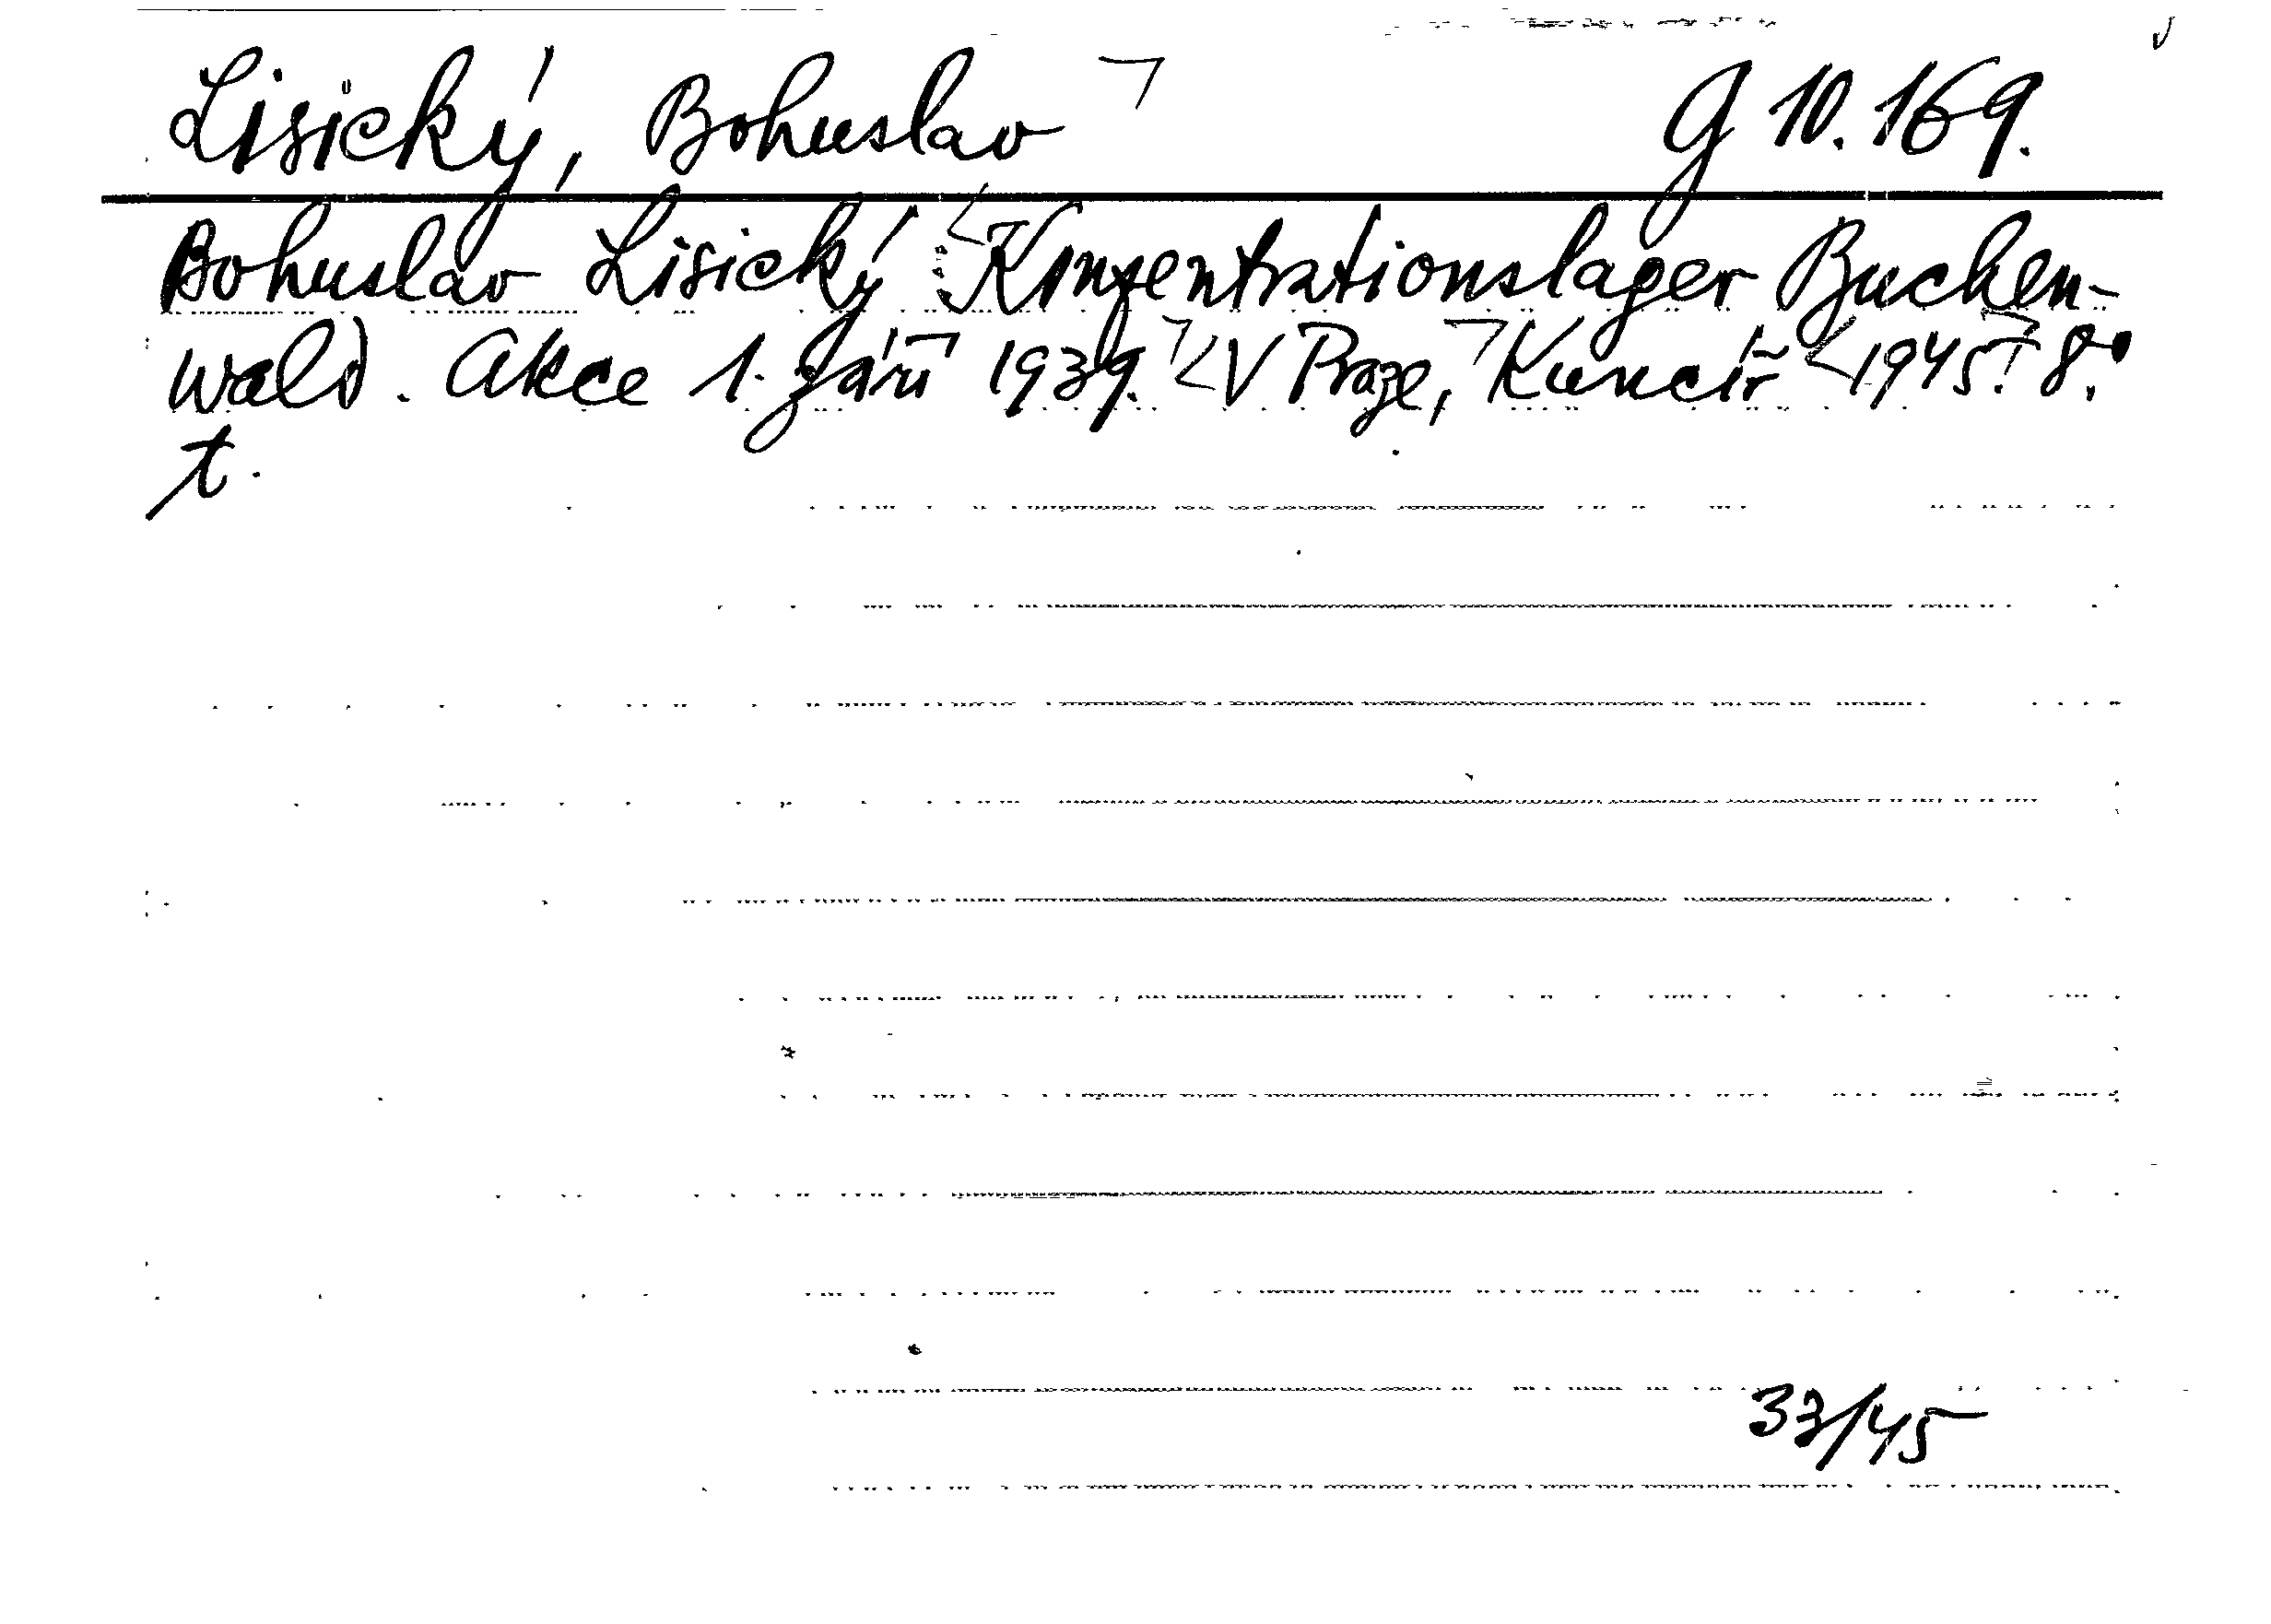 Lisický, Bohuslav G 10.169.
Bohuslav Lisický: Konzentrationslager Buchen-
wald. Akce 1. září 1939. V Praze, Kuncíř 1945. 8°.
t.
33/45